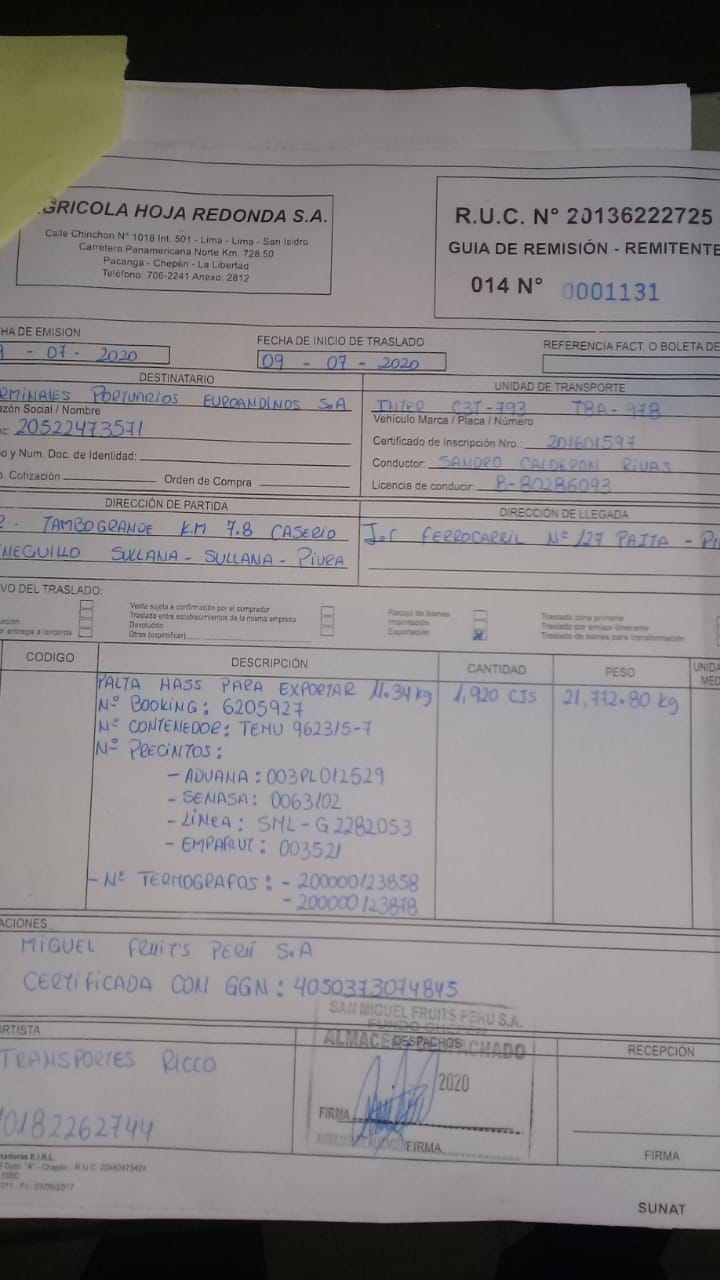 GRICOLA HOJA REDONDA S.A.
Calle Chinchon N° 1018 Int. 501 - Lima - Lima - San Isidro
Carretera Panamericana Norte Km. 728.50
Pacanga - Chepén - La Libertad
Teléfono: 706-2241 Anexo: 2812
R.U.C. N° 20136222725
GUIA DE REMISIÓN - REMITENTE
014 N° 0001131
HA DE EMISION
- 07 - 2020
FECHA DE INICIO DE TRASLADO
09 - 07 - 2020
REFERENCIA FACT. O BOLETA DE
DESTINATARIO
RMINALES PORTUARIOS EUROANDINOS S.A
azón Social / Nombre
c: 20522473571
o y Num. Doc. de Identidad:
o. Cotización Orden de Compra
UNIDAD DE TRANSPORTE
INTER C3T-793 TBA-978
Vehículo Marca / Placa / Número
Certificado de Inscripción Nro.: 201601597
Conductor: SANDRO CALDERON RIVAS
Licencia de conducir: B-80286093
DIRECCIÓN DE PARTIDA
TAMBOGRANDE KM 7.8 CASERIO
NEGUILLO SULLANA - SULLANA - PIURA
DIRECCIÓN DE LLEGADA
FERROCARRIL N° 127 PAITA -
VO DEL TRASLADO:
Venta sujeta a confirmación por el comprador
Traslado entre establecimientos de la misma empresa
Devolución
Otras (especificar)
entrega a terceros
Recojo de bienes
Importación
Exportación
Traslado zona primaria
Traslado por emisor itinerante
Traslado de bienes para transformación
CODIGO DESCRIPCIÓN CANTIDAD PESO UNID
MED
PALTA HASS PARA EXPORTAR 11.34 kg 1,920 CJS 21,772.80 kg
N° BOOKING: 6205927
N° CONTENEDOR: TEMU 962315-7
N° PRECINTOS:
- ADUANA: 003PL012529
- SENASA: 0063102
- LÍNEA: SML-G2282053
003521
- N° TERMOGRAFOS: - 200000123858
- 200000123878
ACIONES
MIGUEL FRUITS PERÚ S.A
CERTIFICADA CON GGN: 4050373074845
SAN MIGUEL FRUITS PERU S.A.
DESPACHOS
2020
FIRMA
FIRMA
ORTISTA
TRANSPORTES RICCO
0182262744
RECEPCIÓN
FIRMA
tadoras E.I.R.L.
Chepén - R.U.C. 20482473424
SUNAT